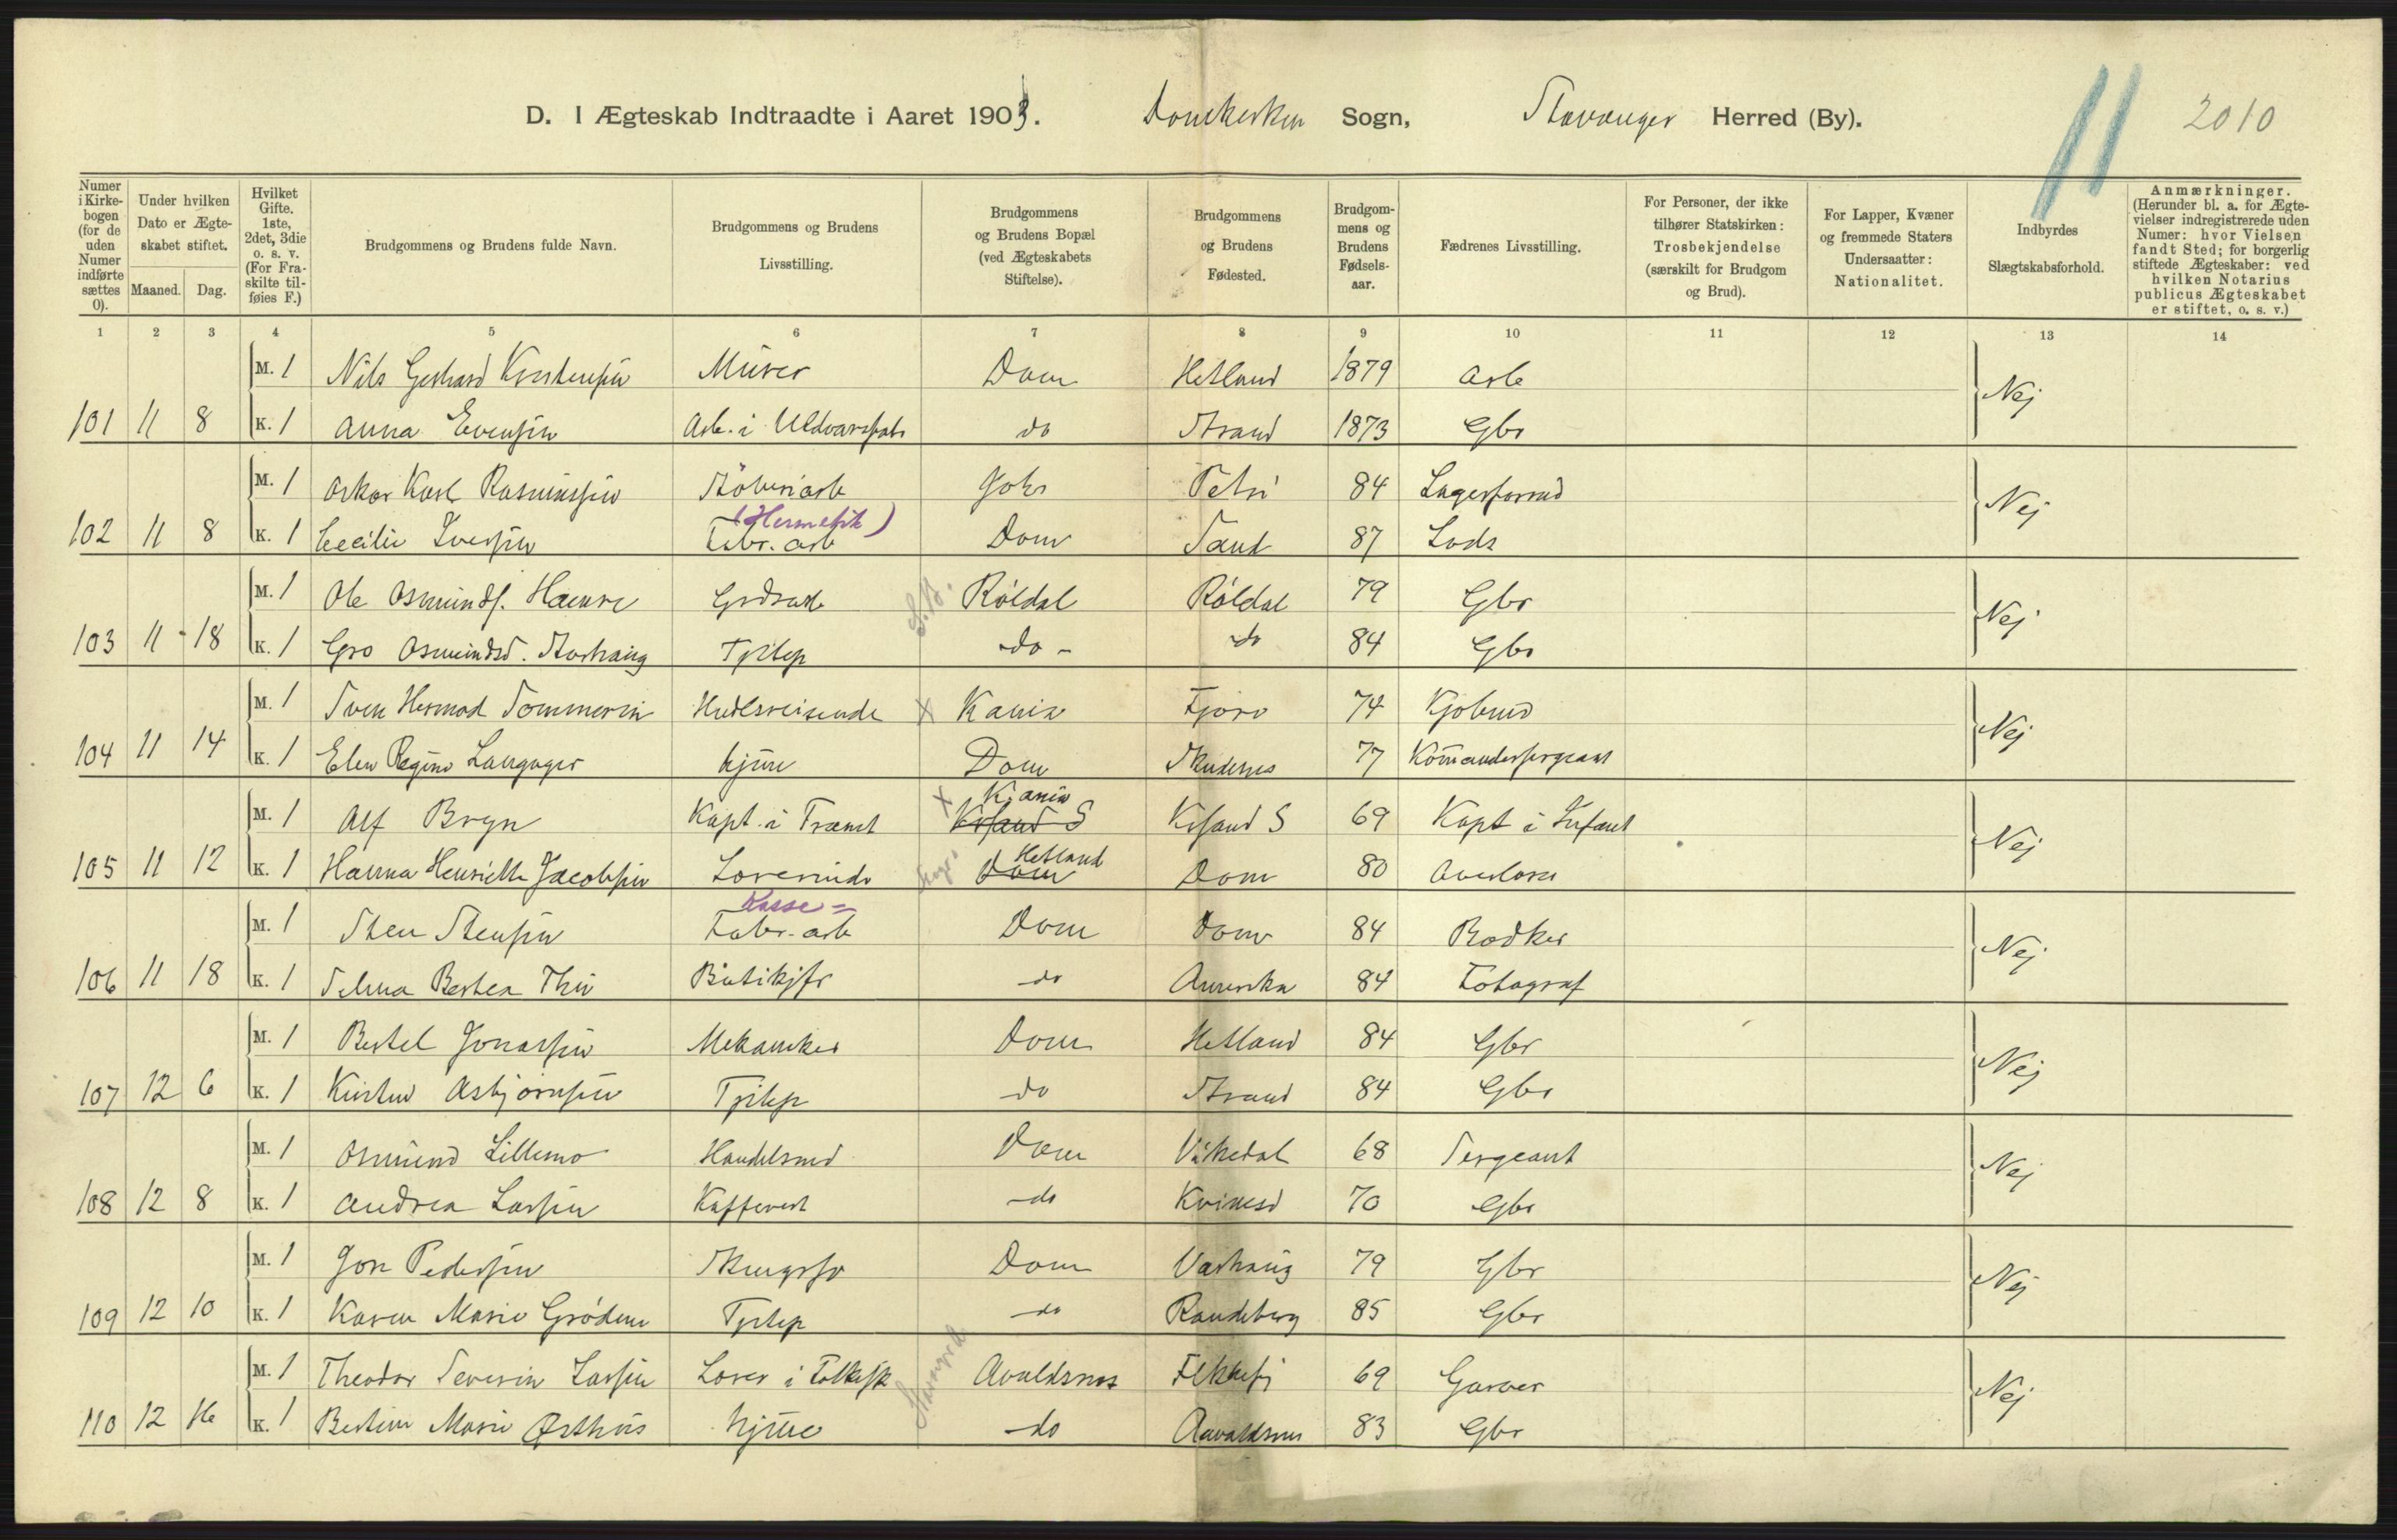 D. I Ægteskab Indtraadte i Aaret 1903. Domkirken Sogn, Stavanger Herred (By). 11 2010
Numer i Kirke-bogen (for de uden Numer indførte sættes 0).
Under hvilken Dato er Ægte-skabet stiftet.
Maaned. Dag.
Hvilket Gifte. 1ste, 2det, 3die o. s. v. (For Fra-skilte til-føies F.)
Brudgommens og Brudens fulde Navn.
Brudgommens og Brudens Livsstilling.
Brudgommens og Brudens Bopæl (ved Ægteskabets Stiftelse).
Brudgommens og Brudens Fødested.
Brudgom-mens og Brudens Fødsels-aar.
Fædrenes Livsstilling.
For Personer, der ikke tilhører Statskirken: Trosbekjendelse (særskilt for Brudgom og Brud).
For Lapper, Kvæner og fremmede Staters Undersaatter: Nationalitet.
Indbyrdes Slægtskabsforhold.
Anmærkninger. (Herunder bl. a. for Ægte-vielser indregistrerede uden Numer: hvor Vielsen fandt Sted; for borgerlig stiftede Ægteskaber: ved hvilken Notarius publicus Ægteskabet er stiftet, o. s. v.)
1 2 3 4 5 6 7 8 9 10 11 12 13 14
M. 1 Nils Gerhard Kristensen Murer Dom Hetland 1879 Arb Nej
101 11 8 K. 1 Anna Evensen Arb. i Uldvarefabr do Strand 1873 Gbr
M. 1 Oskar Karl Rasmussen Støberiarb Joh Petri 84 Lagerformd Nej
(Hermetik)
102 11 8 K. 1 Cecilie Iversen Fabr. arb Dom Sand 87 Lods
M. 1 Ole Osmunds. Hamre Grdarb S.B. Røldal Røldal 79 Gbr Nej
103 11 18 K. 1 Gro Osmundsd. Tjstep do do 84 Gbr
M. 1 Sven Hermod Sommerin Hndlsreisende x Kania 74 Kjøbmd Nej
104 11 14 K. 1 Elen Regine Langager hjme Dom Skudenes 77 Komandersergeant
Kr.ania
M. 1 Alf Bryn Kapt. i x Krsand S Krsand S 69 Kapt i Infant Nej
Hetland
105 11 12 K. 1 Hanna Henriette Jacobsen Lærerinde Dom Dom 80 Overlærer
Kasse=
M. 1 Sten Stensen Fabr. arb Dom Dom 84 Bødker Nej
106 11 18 K. 1 Selma Bertea Thu Butikjfr do Amerika 84 Fotograf
M. 1 Bertel Jonassen Mekaniker Dom Hetland 84 Gbr Nej
107 12 6 K. 1 Kirstine Asbjørnsen Tjstep do Strand 84 Gbr
M. 1 Osmund Lillemo Handelsmd Dom Vikedal 68 Sergeant Nej
108 12 8 K. 1 Andrea Larsen Kaffevert do Kvinesd 70 Gbr
M. 1 Jon Pedersen Dom Varhaug 79 Gbr Nej
109 12 10 K. 1 Karen Marie Grødem Tjstep do Randeberg 85 Gbr
M. 1 Theodor Severin Larsen Lærer i Folkesk Avaldsnes Flekkefj 69 Garver Nej
110 12 16 K. 1 Bertine Marie Østhus hjme do Aavaldsnes 83 Gbr